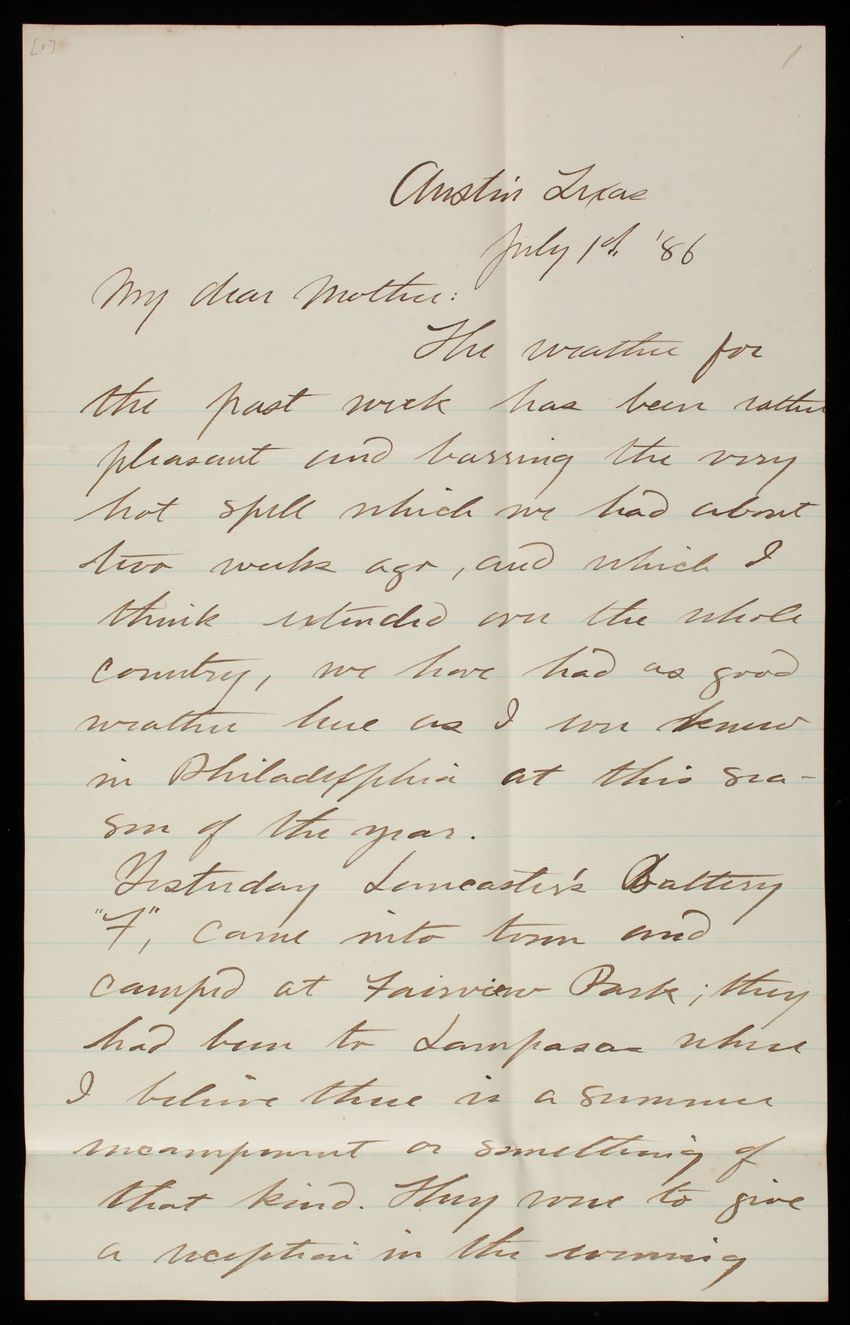 [1]
1
Austin Texas
July 1st, '86
My dear Mother:
The weather for
the past week has been rather
pleasant and barring the very
hot spell which we had about
two weeks ago, and which I
think extended over the whole
country, we have had as good
weather here as I ever knew
in Philadelphia at this sea-
son of the year.
Yesterday Lancaster's Battery
"F", came into town and
camped at Fairview Park; they
had been to Lampasas where
I believe there is a summer
encampment or something of
that kind. They were to give
a reception in the evening